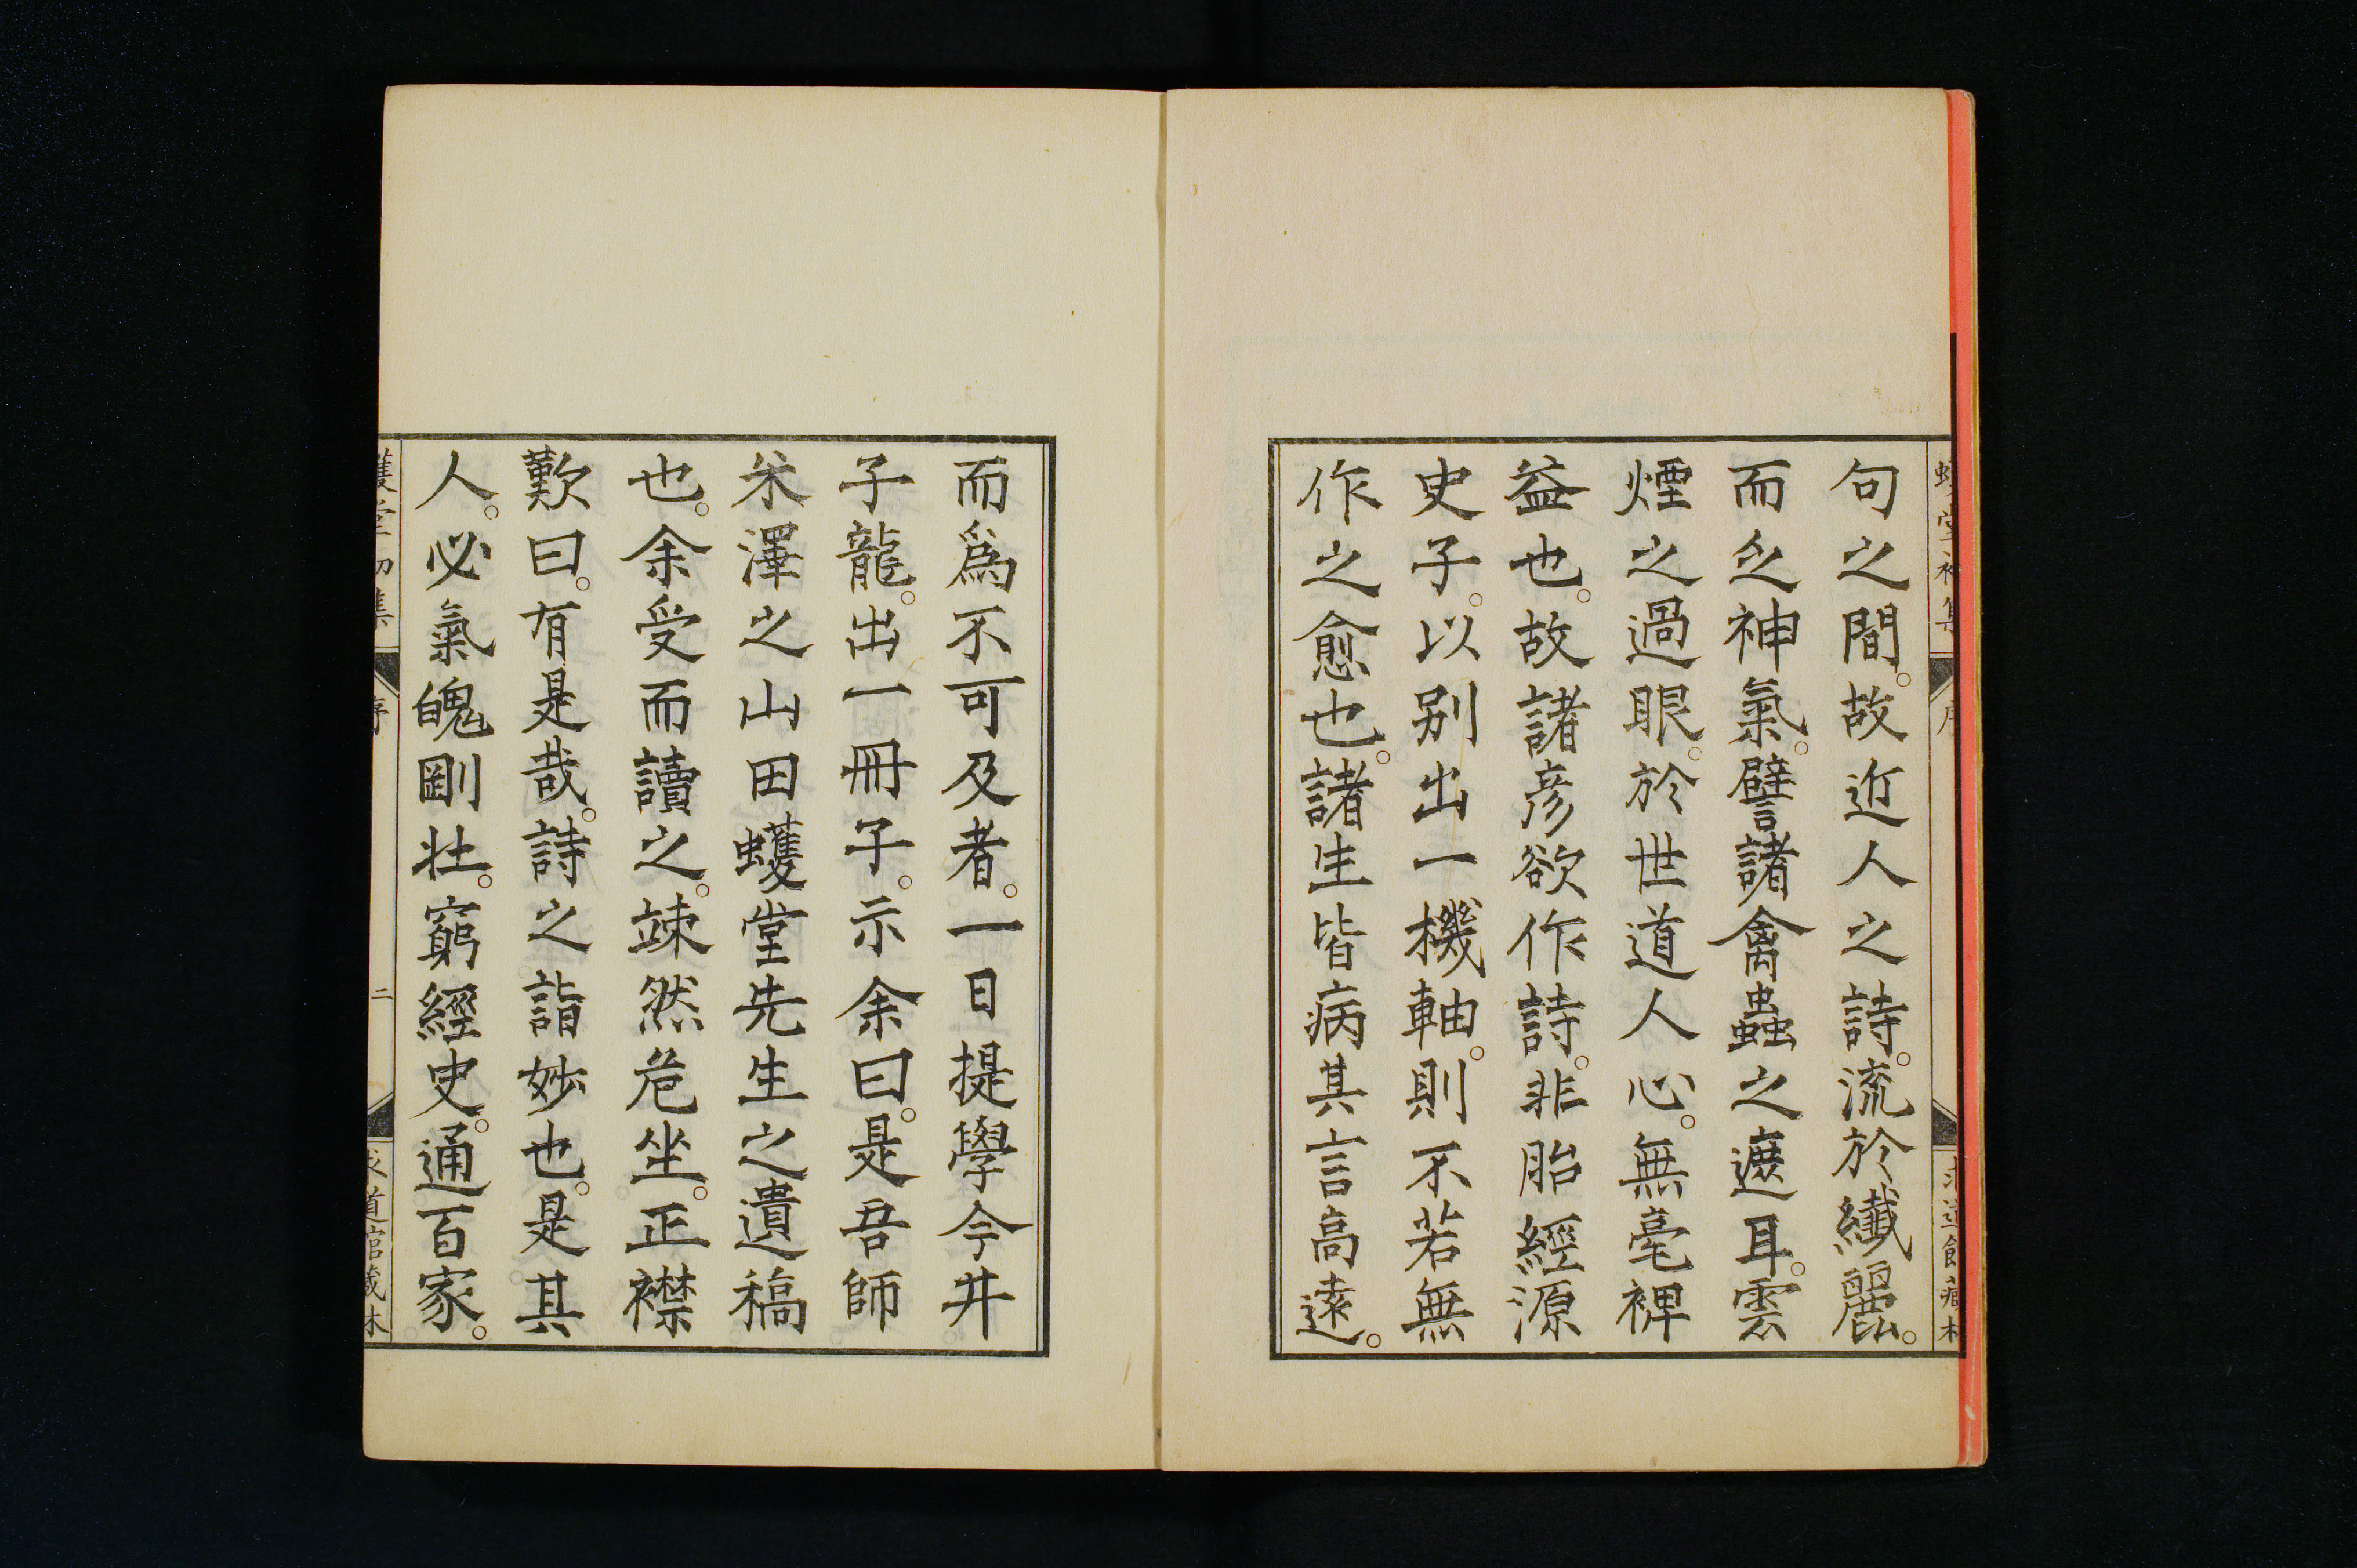 句之間。故近人之詩。流於纖麗。
而乏神氣。譬諸禽蟲之遮耳。雲
煙之過眼。於世道人心。無毫裨
益也。故諸彦欲作詩。非胎經源
史子。以别出一機軸。則不若無
作之愈也。諸生皆病其言高遠。
而爲不可及者。一日提學今井
子龍。出一冊子。示余曰。是吾師
米澤之山田蠖堂先生之遺稿
也。余受而讀之。竦然危坐。正襟
歎曰。有是哉。詩之詣妙也。是其
人。必氣魄剛壯。窮經史。通百家。
序
二